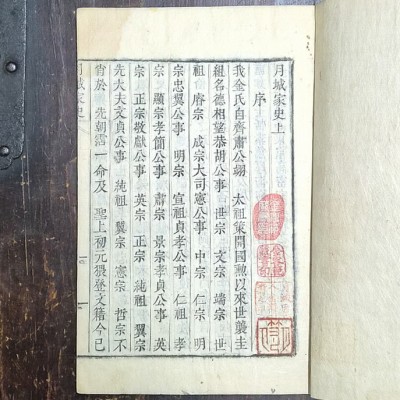 月城家史上
序
我金氏自齊肅公翊 太祖策開國勲以來世襲圭
組名德相望恭胡公事 世宗 文宗 端宗 世
祖 睿宗 成宗大司憲公事 中宗 仁宗 明
宗忠翼公事 明宗 宣祖貞孝公事 仁祖 孝
宗 顯宗孝簡公事 肅宗 景宗孝貞公事 英
宗 正宗敬獻公事 英宗 正宗 純祖 翼宗
先大夫文貞公事 純祖 翼宗 憲宗 哲宗不
肖於 先朝霑一命及 聖上初元猥登文籍今已
月城家史